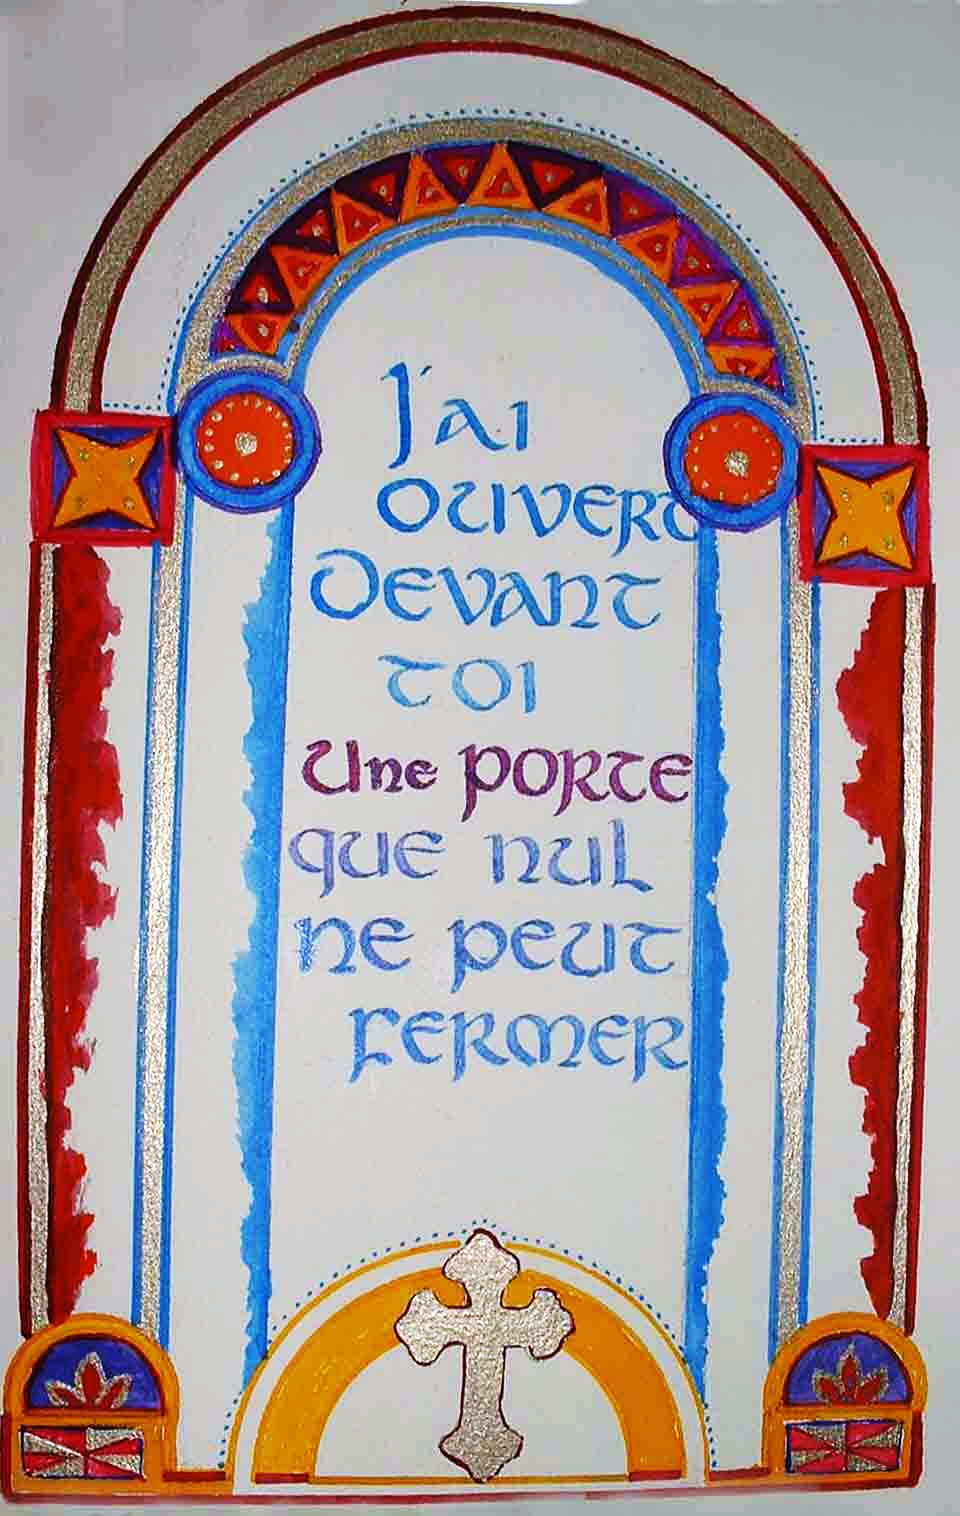 J'ai
ouvert
Devant
toi
Une porte
que nul
ne peut
fermer